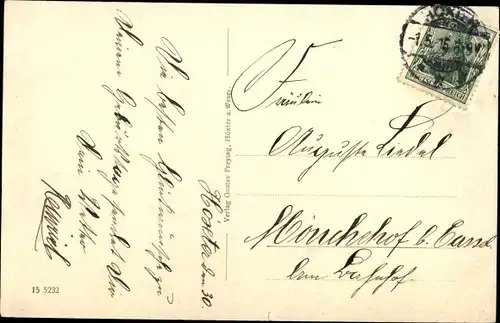 Höxter den 30.
Die besten Glückwünsche zu
Deinem Geburtstage sendet Dir
Dein Vetter
Heinrich
Verlag Gustav Freytag, Höxter a. Weser
15 5232
-1.5.15
Fräulein
Auguste Liedel
Mönchehof b. Cassel
Am Bahnhof.